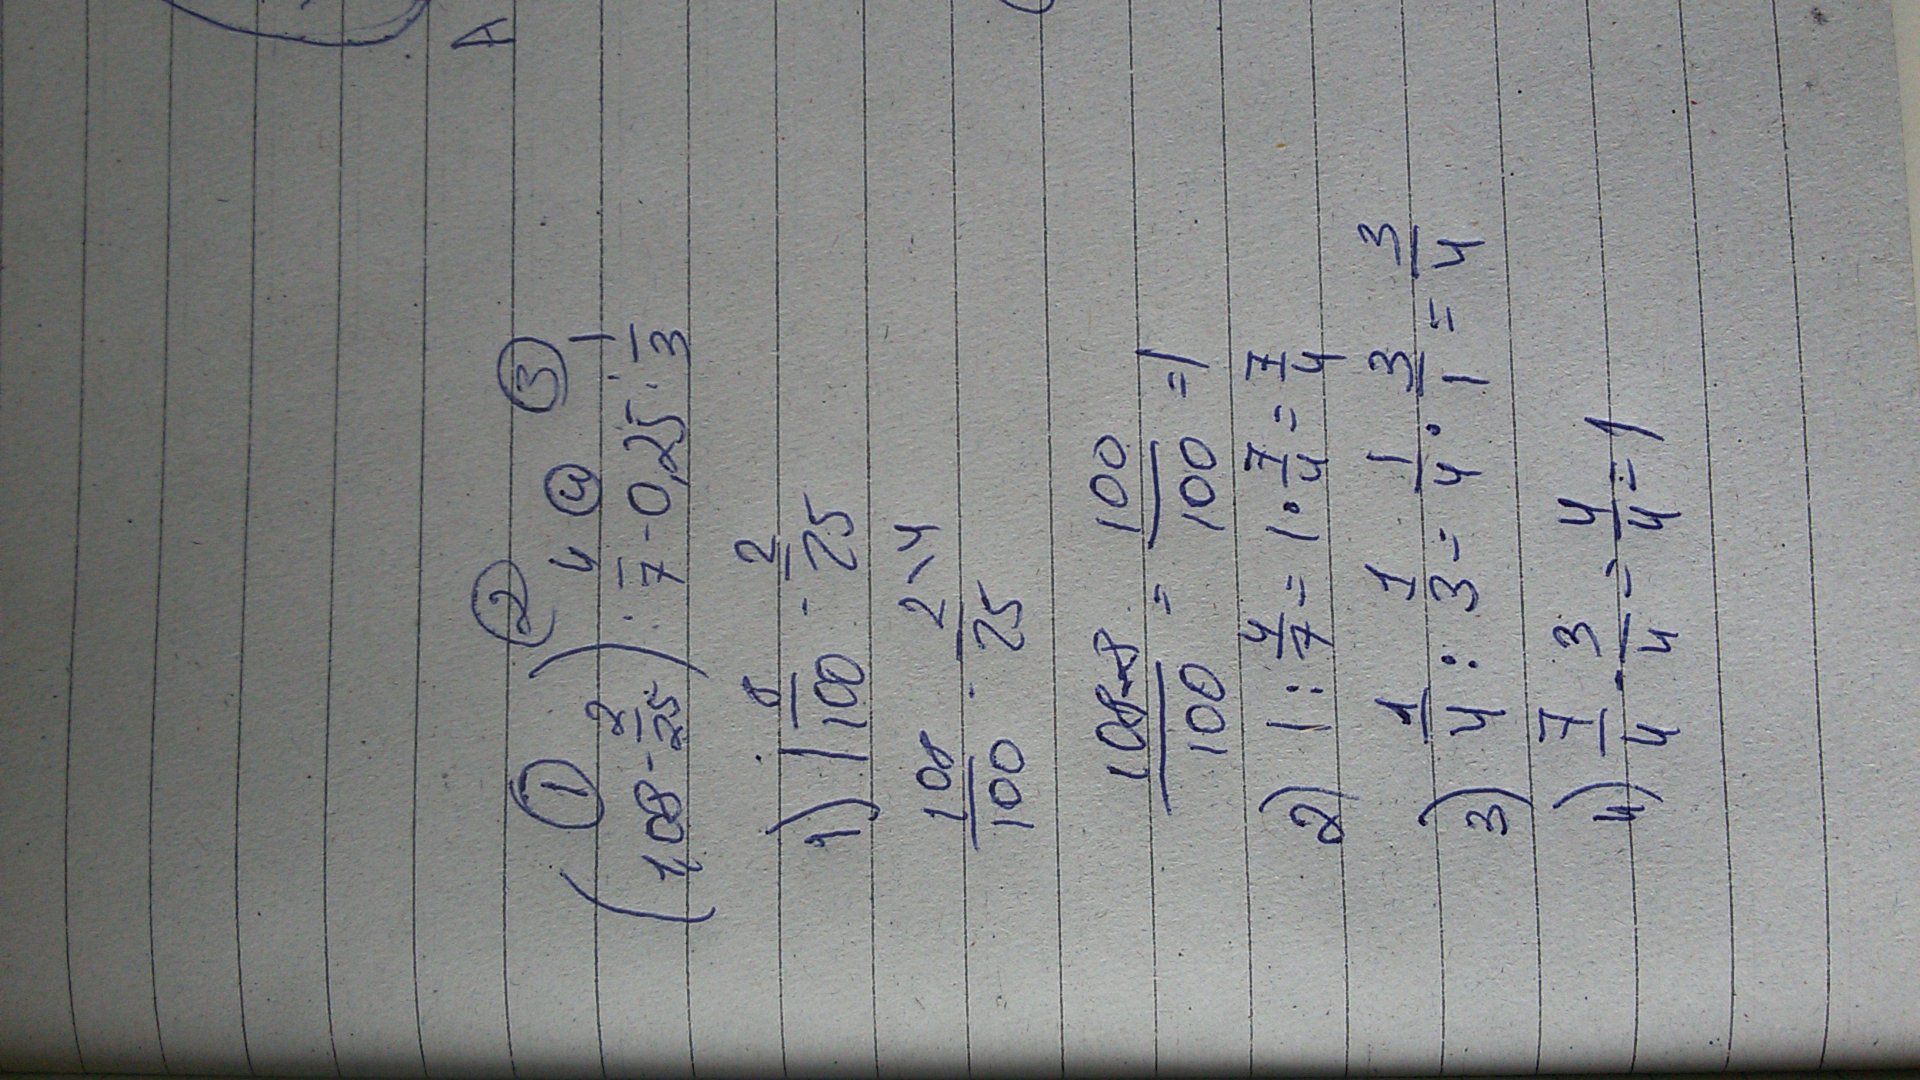 A
① ② ④ ③
(1,08 - 2/25) : 4/7 - 0,25 : 1/3
1) 1 8/100 - 2/25
108/100 - 2\4/25
108-8/100 = 100/100 = 1
2) 1 : 4/7 = 1 · 7/4 = 7/4
3) 1/4 : 1/3 = 1/4 · 3/1 = 3/4
4) 7/4 - 3/4 = 4/4 = 1